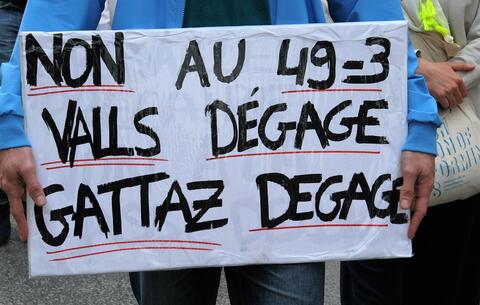 NON AU 49=3
VALLS DÉGAGE
GATTAZ DEGAGE